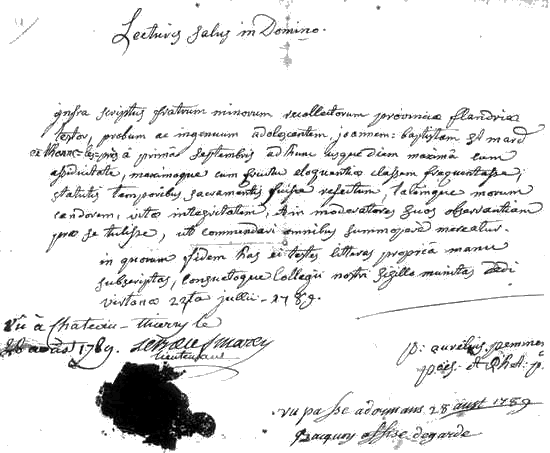 Lecturis salus in Domino.
infra scriptus fratrum minorum recollectorum provinciæ flandriæ
testor, probum ac ingenuum adolescentem, joannem-baptistam St mard
a primâ septembris ad hunc usque diem maximâ cum
assiduitate, maximoque cum fructu eloquentiæ classem frequentasse;
statutis temporibus sacramentis fuisse refectum, talemque morum
candorem, vitæ integritatem, & in moderatores suos observantiam
præ se tulisse, ut commendari omnibus summopere mereatur.
in quorum fidem has ei testes litteras propriâ manu
subscriptas, consuetoque Collegii nostri sigillo munitas dedi
22ta julii - 1789.
Vû à Chateau-thierry le
26 août 1789.
Lieutenant
p: aurelius
vu passe a dormans 28 aust 1789
de garde